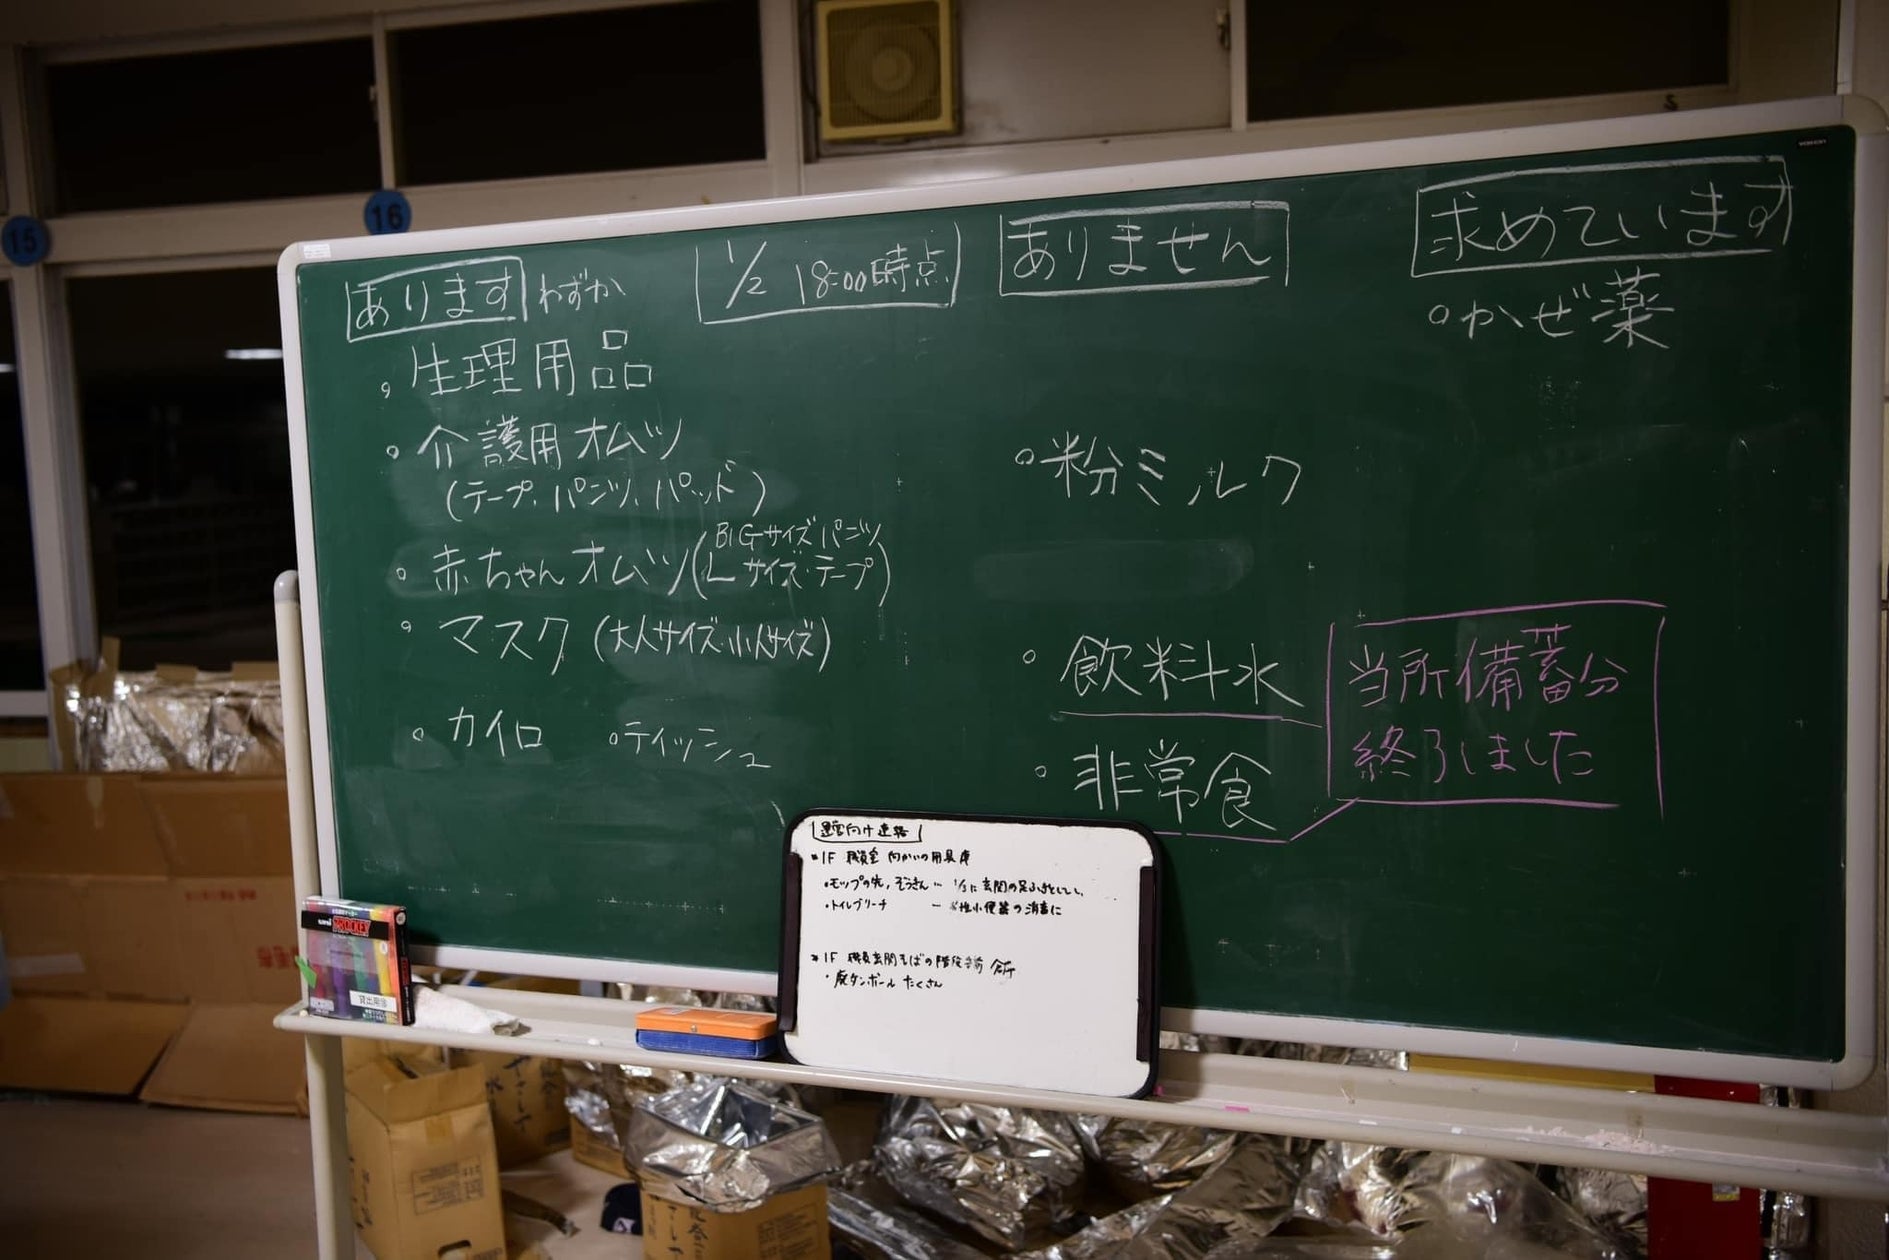 15
16
あります わずか
1/2 18:00時点
ありません
求めています
。生理用品
。介護用オムツ
(テープ、パンツ、パッド)
。赤ちゃんオムツ(BIGサイズパンツ
Lサイズ・テープ)
。マスク(大人サイズ・小人サイズ)
。カイロ 。ティッシュ
。粉ミルク
。飲料水
。非常食
当所備蓄分
終了しました
。かぜ薬
運営向け連絡
1F 職員室 向かいの用具庫
・モップの先, ぞうきん
玄関の足ふきとして
・トイレブリーチ
小便器の消毒に
1F 職員玄関そばの階段
・廃ダンボール たくさん
PROCKEY
貸出用⑥